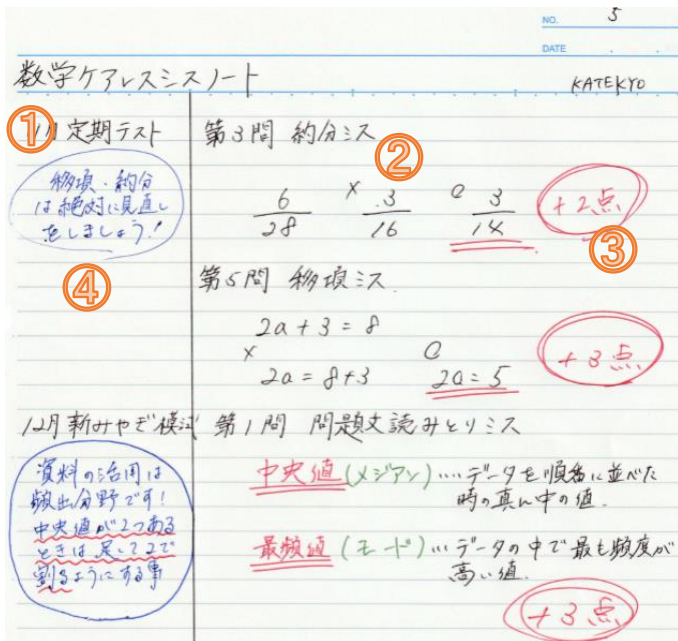 NO. 5
DATE
数学ケアレスミスノート KATEKYO
① 月定期テスト 第3問 約分ミス
②
移項・約分
は絶対に見直し
をしましょう!
6/28 × 3/16 ○ 3/14 +2点
③
④
第5問 移項ミス
2a+3=8
× ○
2a=8+3 2a=5 +3点
12月新みやぎ模試 第1問 問題文読みとりミス
資料の活用は
頻出分野です!
中央値が2つある
ときは足して2で
割るようにする事
中央値(メジアン)……データを順番に並べた
時の真ん中の値.
最頻値(モード)…データの中で最も頻度が
高い値.
+3点